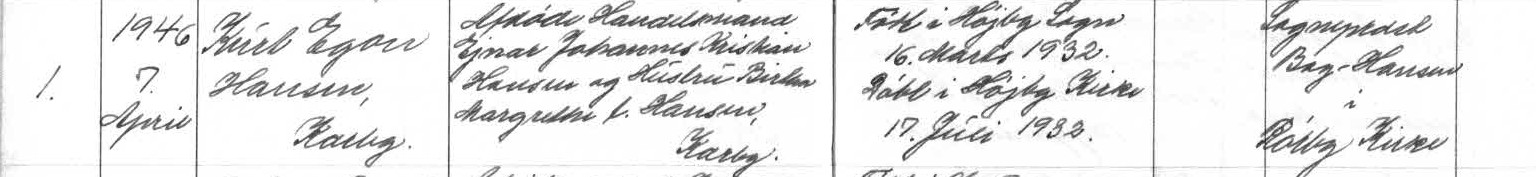 1.
1946
7.
April
Kurt Egon
Hansen,
Karby.
Afdøde Handelsmand
Ejnar Johannes Kristian
Hansen og Hustru Birtha
Margrethe f. Hansen,
Karby.
Født i Højby Sogn
16. Marts 1932.
Døbt i Højby Kirke
17. Juli 1932.
Sognepræst
Bay-Hansen
i
Kirke